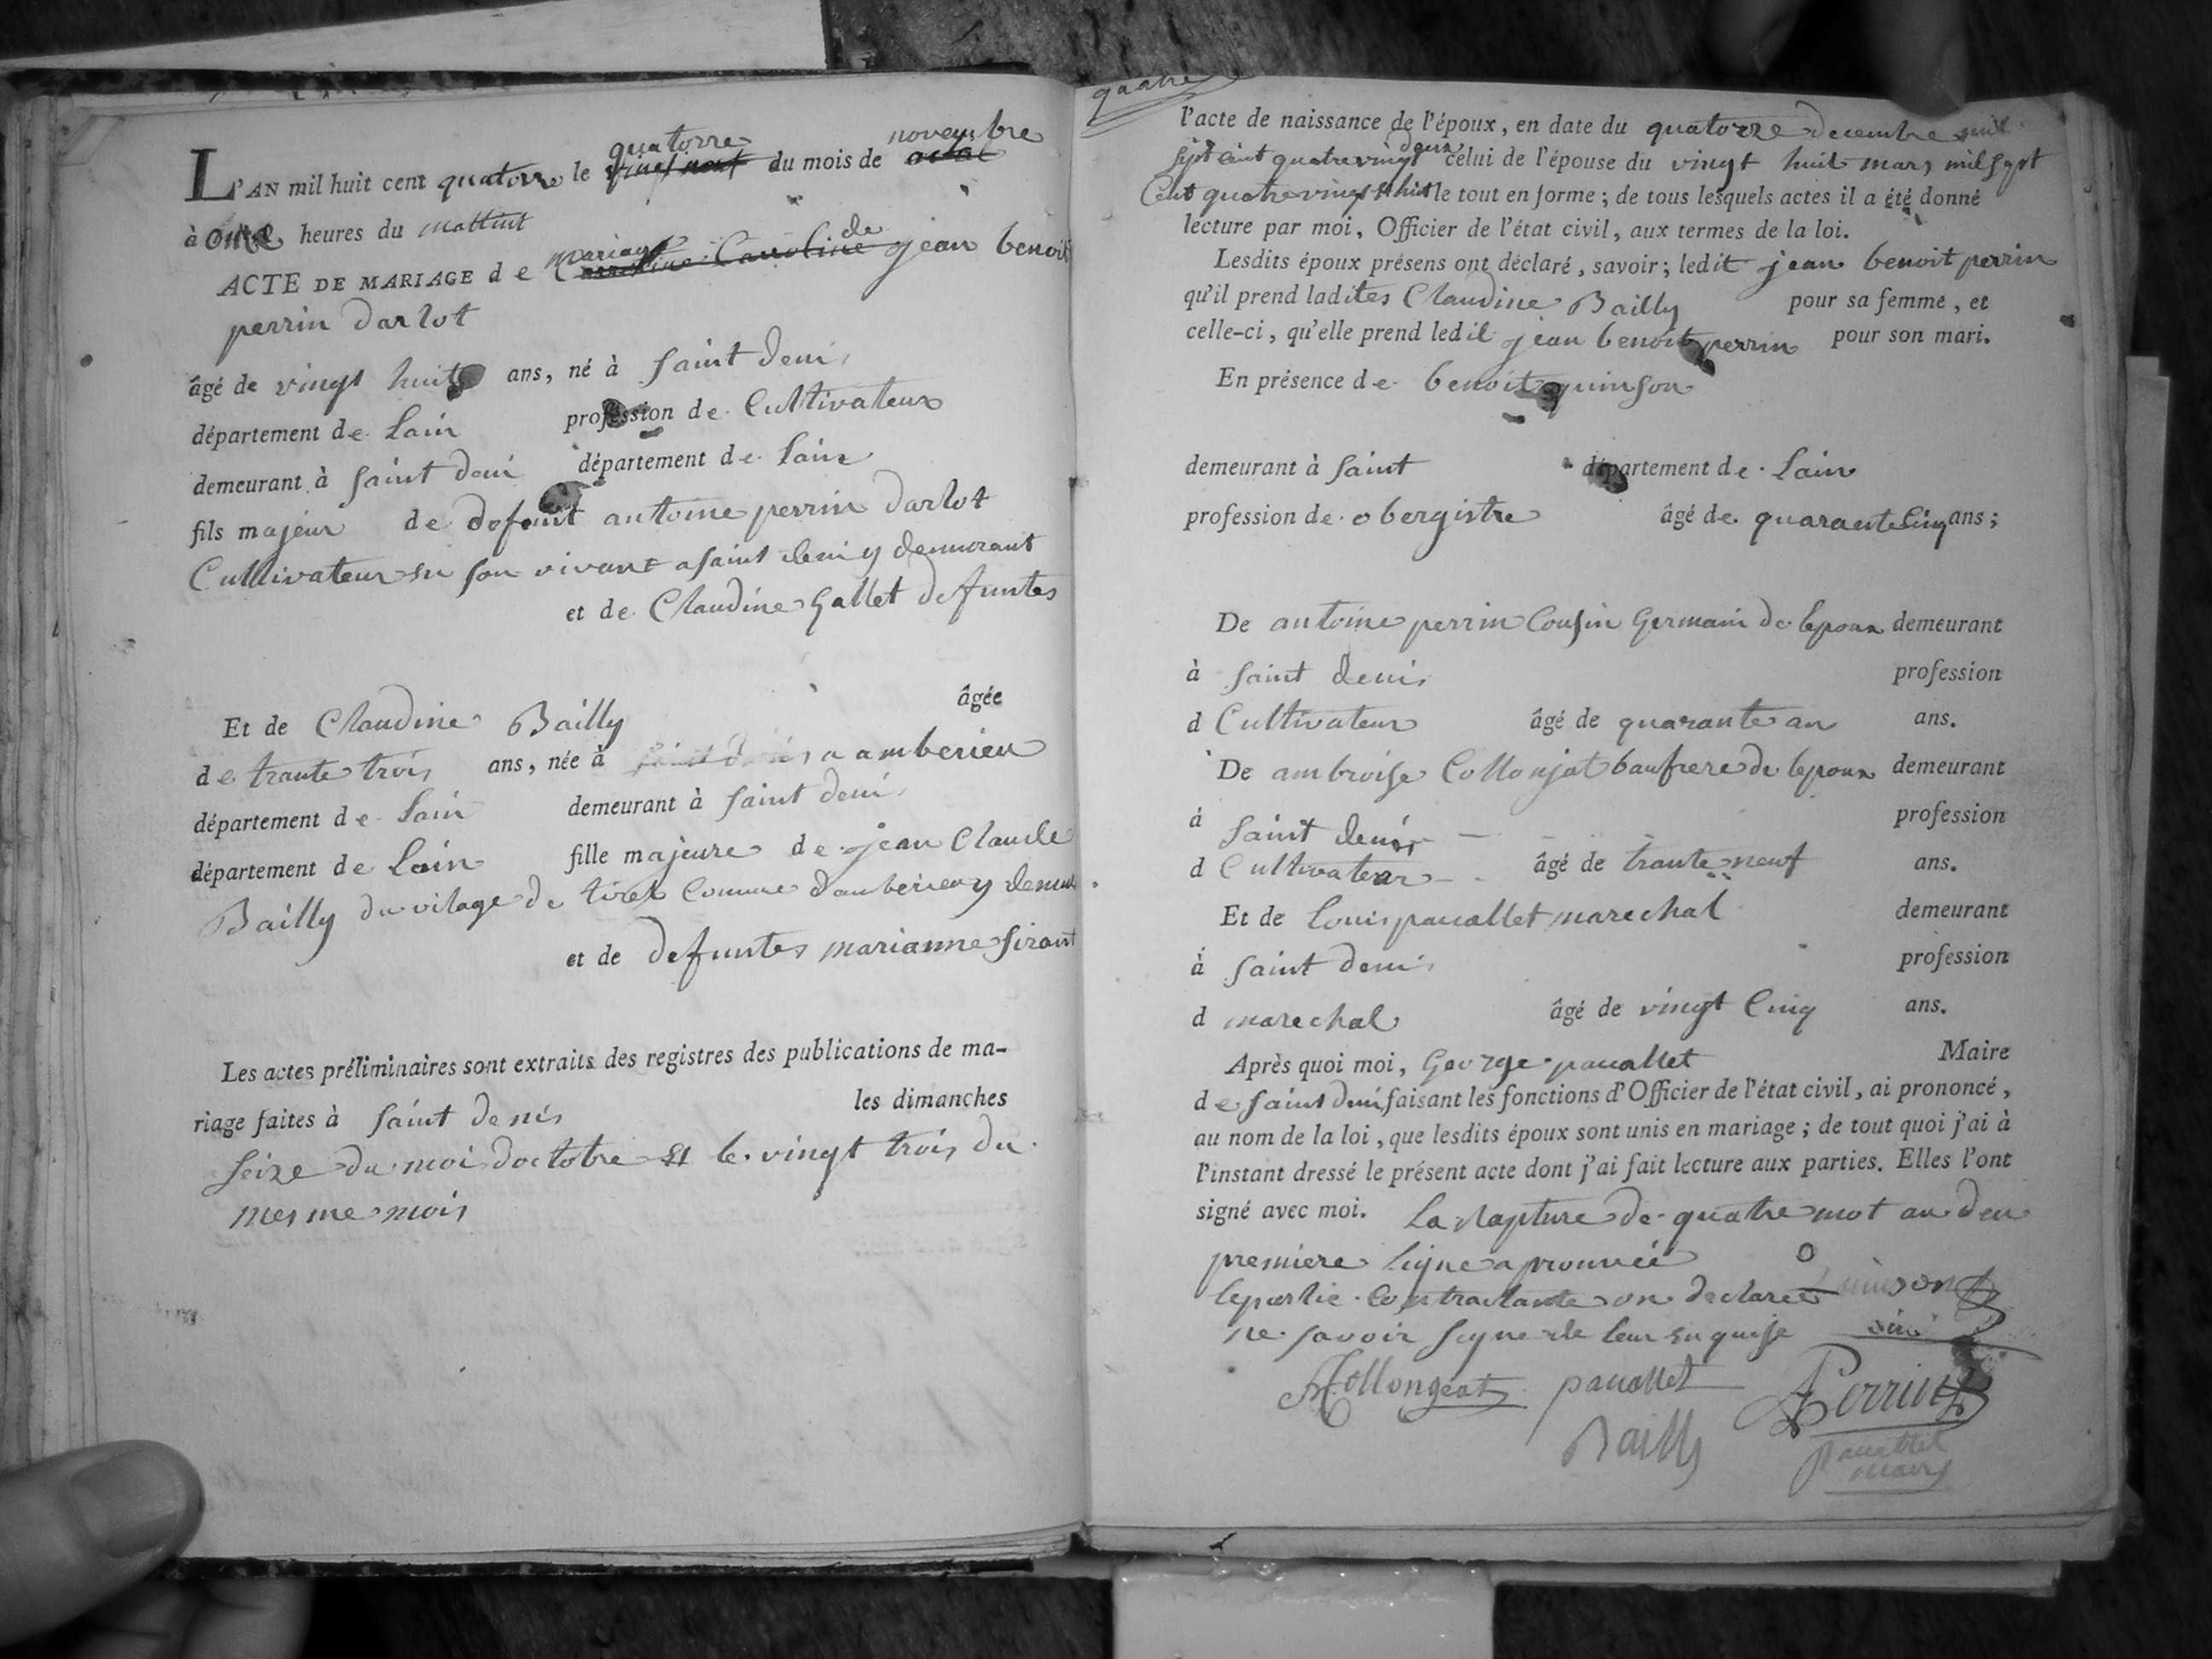 quatorze novembre
L'AN mil huit cent quatorze le vingt neuf du mois de octob
à onze heures du mattint
mariage de
ACTE DE MARIAGE de Caroline jean benoit
perrin darlot
âgé de vingt huit ans, né à saint deni
département de Lain profession de Cultivateur
demeurant à saint deni département de Lain
fils majeur de defunt antoine perrin darlot
Cultivateur en son vivant a saint deni y demurant
et de Claudine Gallet defuntes
Et de Claudine Bailly âgée
de trante trois ans, née à saint denis a amberieu
département de Lain demeurant à saint deni
département de Lain fille majeure de jean Claude
Bailly du vilage de tiret Comune d'amberieu y demeu
et de defuntes marianne sirant
Les actes préliminaires sont extraits des registres des publications de ma-
riage faites à saint denis les dimanches
seize du moi doctobre et le vingt trois du
mesme mois
quatre
l'acte de naissance de l'époux, en date du quatorze decembre mil
deux
sept cent quatre vingt celui de l'épouse du vingt huit mars mil sept
Cent quatre vingt le tout en forme ; de tous lesquels actes il a été donné
lecture par moi, Officier de l'état civil, aux termes de la loi.
Lesdits époux présens ont déclaré, savoir ; ledit jean benoit perrin
qu'il prend ladites Claudine Bailly pour sa femme, et
celle-ci, qu'elle prend ledit jean benoit perrin pour son mari.
En présence de benoit quinson
demeurant à saint département de Lain
profession de obergistre âgé de quarante Cinq ans ;
De antoine perrin Cousin Germain de lepoux demeurant
à saint deni profession
d Cultivateur âgé de quarante an ans.
De ambroise Collonjat baufrere de lepoux demeurant
à saint denis profession
d Cultivateur âgé de trante neuf ans.
Et de Louis pauallet marechal demeurant
à saint deni profession
d marechal âgé de vingt Cinq ans.
Après quoi moi, George pauallet Maire
de saint deni faisant les fonctions d'Officier de l'état civil, ai prononcé,
au nom de la loi, que lesdits époux sont unis en mariage ; de tout quoi j'ai à
l'instant dressé le présent acte dont j'ai fait lecture aux parties. Elles l'ont
signé avec moi. La rapture de quatre mot au deu
premiere ligne aprouvéé
lepartie Contractante on declaree quinson
ne savoir signe de leur enquise
Collongeat pauallet A Perrin
Bailly pauallet
maire